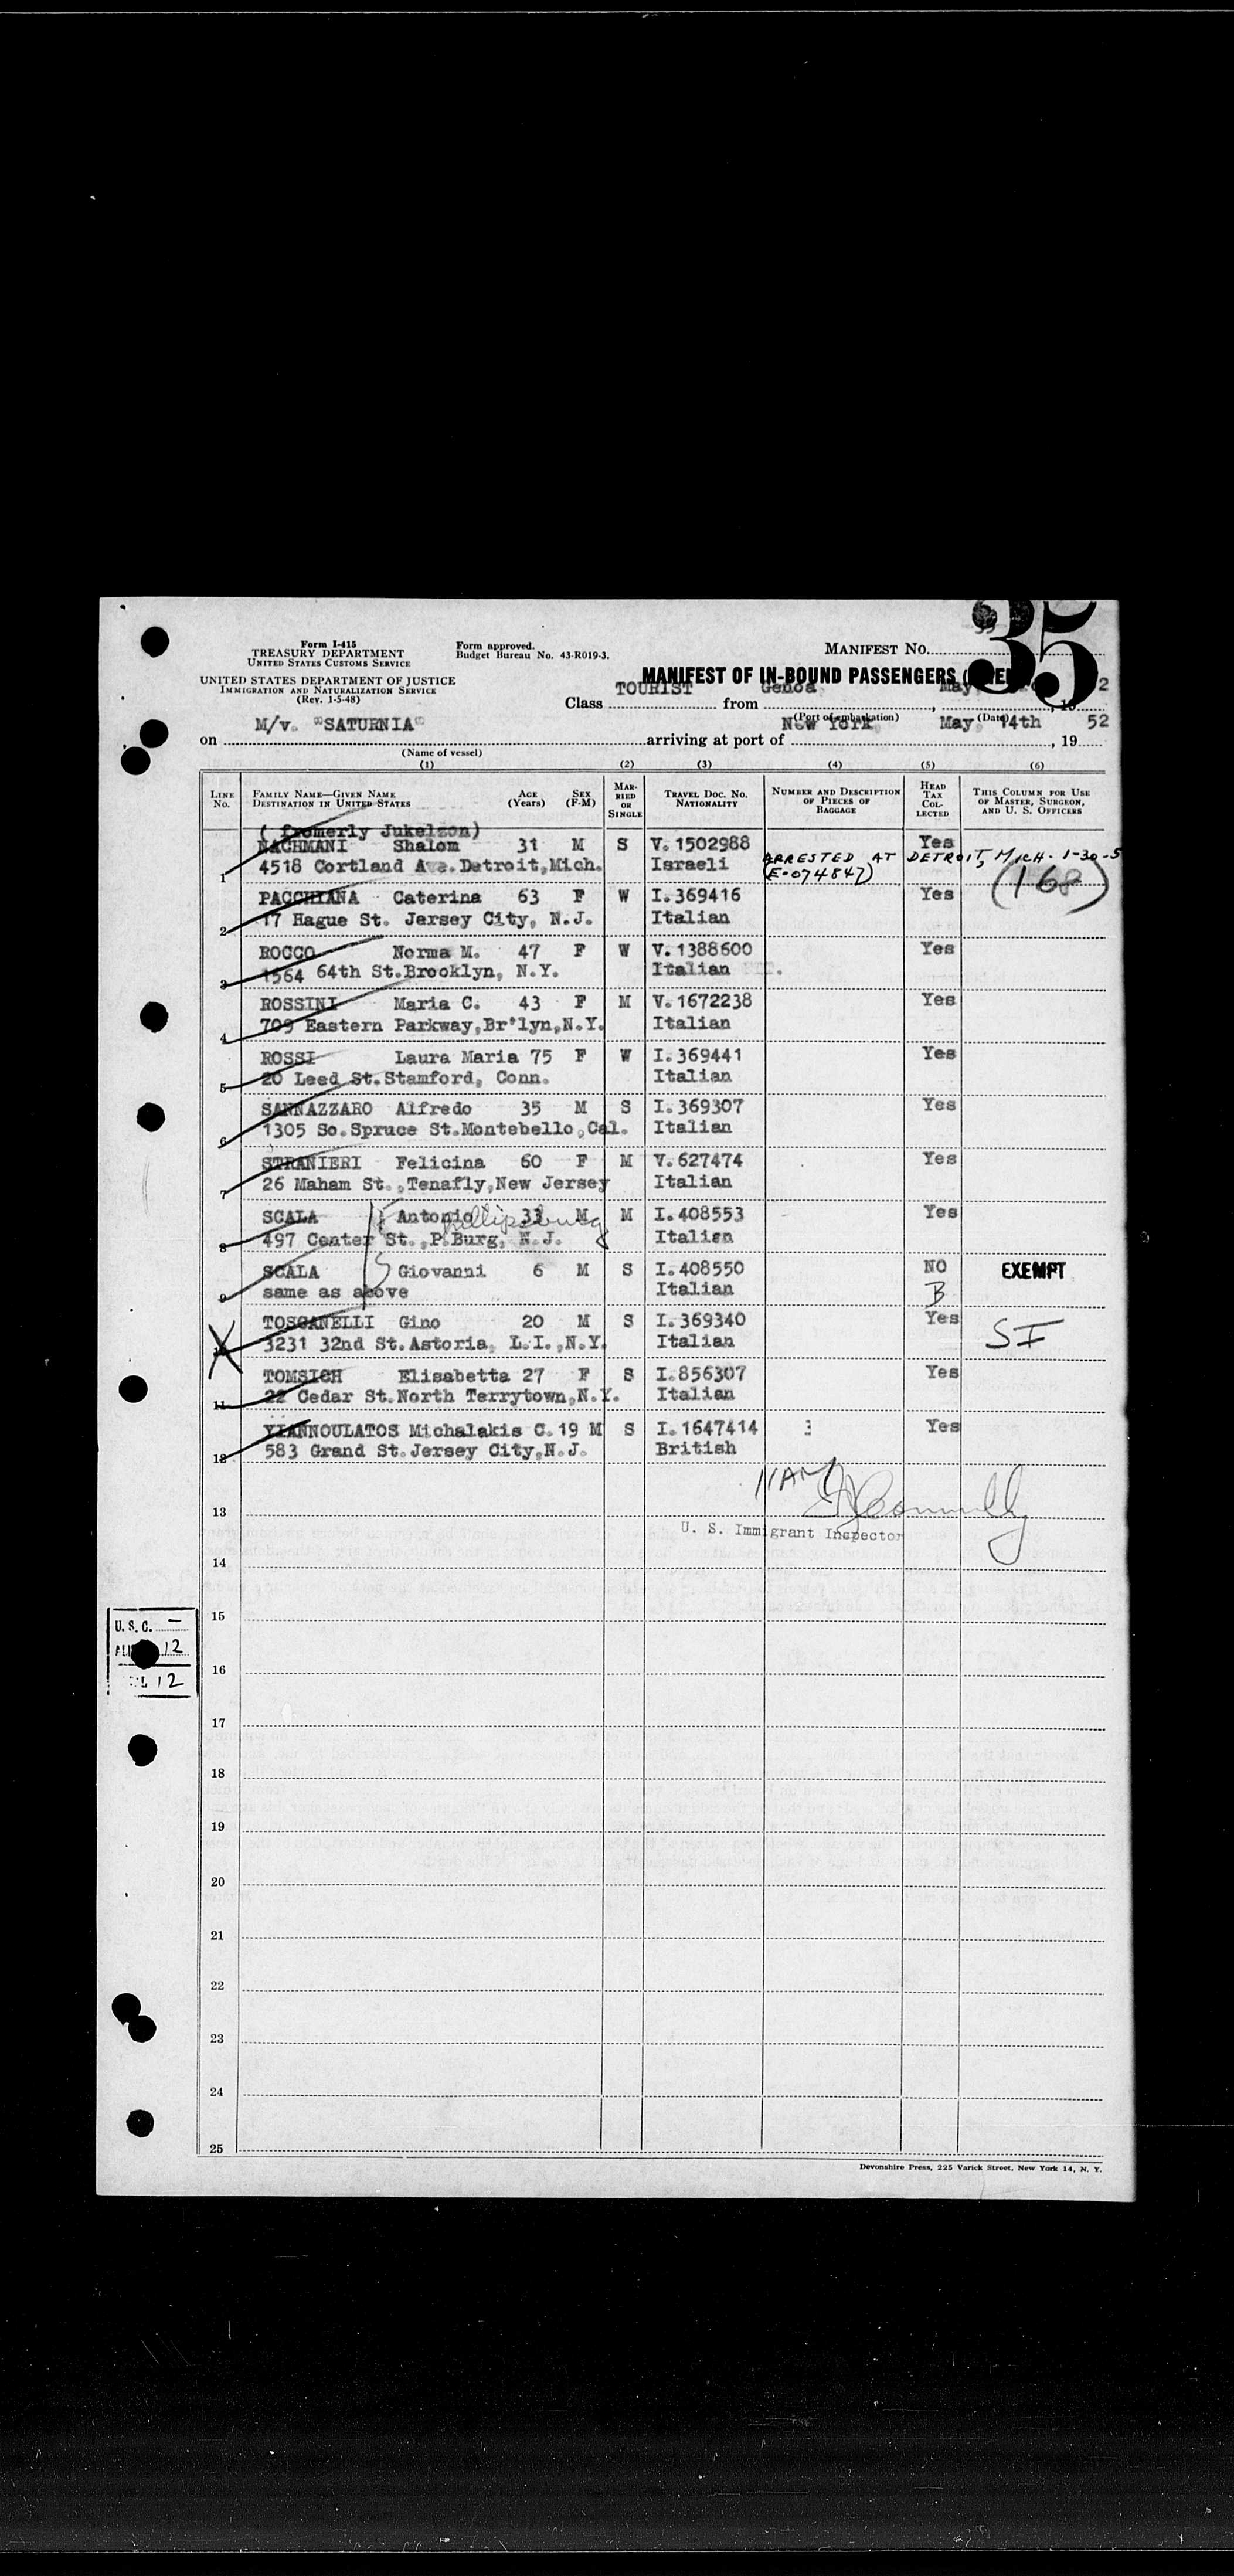 35
Form I-415
TREASURY DEPARTMENT
UNITED STATES CUSTOMS SERVICE
Form approved.
Budget Bureau No. 43-R019-3.
MANIFEST No.
UNITED STATES DEPARTMENT OF JUSTICE
IMMIGRATION AND NATURALIZATION SERVICE
(Rev. 1-5-48)
MANIFEST OF IN-BOUND PASSENGERS
Class TOURIST from Genoa, May, 19 2
(Port of embarkation) (Date)
on M/v. "SATURNIA" arriving at port of New York, May, 14th, 19 52
(Name of vessel)
(1) (2) (3) (4) (5) (6)
LINE No.
FAMILY NAME—GIVEN NAME
DESTINATION IN UNITED STATES
AGE (Years)
SEX (F-M)
MARRIED OR SINGLE
TRAVEL DOC. No.
NATIONALITY
NUMBER AND DESCRIPTION OF PIECES OF BAGGAGE
HEAD TAX COLLECTED
THIS COLUMN FOR USE OF MASTER, SURGEON, AND U. S. OFFICERS
( fromerly Jukelson)
NACHMANI Shalom 31 M S V. 1502988 Yes
1 4518 Cortland Ave. Detroit, Mich. Israeli ARRESTED AT DETROIT, MICH. 1-30-5
(E-074847) (168)
PACCHIANA Caterina 63 F W I. 369416 Yes
2 17 Hague St. Jersey City, N.J. Italian
ROCCO Norma M. 47 F W V. 1388600 Yes
3 1564 64th St. Brooklyn, N.Y. Italian
ROSSINI Maria C. 43 F M V. 1672238 Yes
4 709 Eastern Parkway, Br'lyn, N.Y. Italian
ROSSI Laura Maria 75 F W I. 369441 Yes
5 20 Leed St. Stamford, Conn. Italian
SANNAZZARO Alfredo 35 M S I. 369307 Yes
6 1305 So. Spruce St. Montebello, Cal. Italian
STRANIERI Felicina 60 F M V. 627474 Yes
7 26 Maham St., Tenafly, New Jersey Italian
SCALA Antonio 33 M M I. 408553 Yes
Phillipsburg
8 497 Center St., P. Burg, N.J. Italian
SCALA Giovanni 6 M S I. 408550 NO EXEMPT
9 same as above Italian B
TOSCANELLI Gino 20 M S I. 369340 Yes
X 3231 32nd St. Astoria, L.I., N.Y. Italian SI
TOMSICH Elisabetta 27 F S I. 856307 Yes
11 22 Cedar St. North Terrytown, N.Y. Italian
YIANNOULATOS Michalakis C. 19 M S I. 1647414 Yes
12 583 Grand St. Jersey City, N.J. British
13
U. S. Immigrant Inspector
14
15
U. S. C. —
12
12
16
17
18
19
20
21
22
23
24
25
Devonshire Press, 225 Varick Street, New York 14, N. Y.